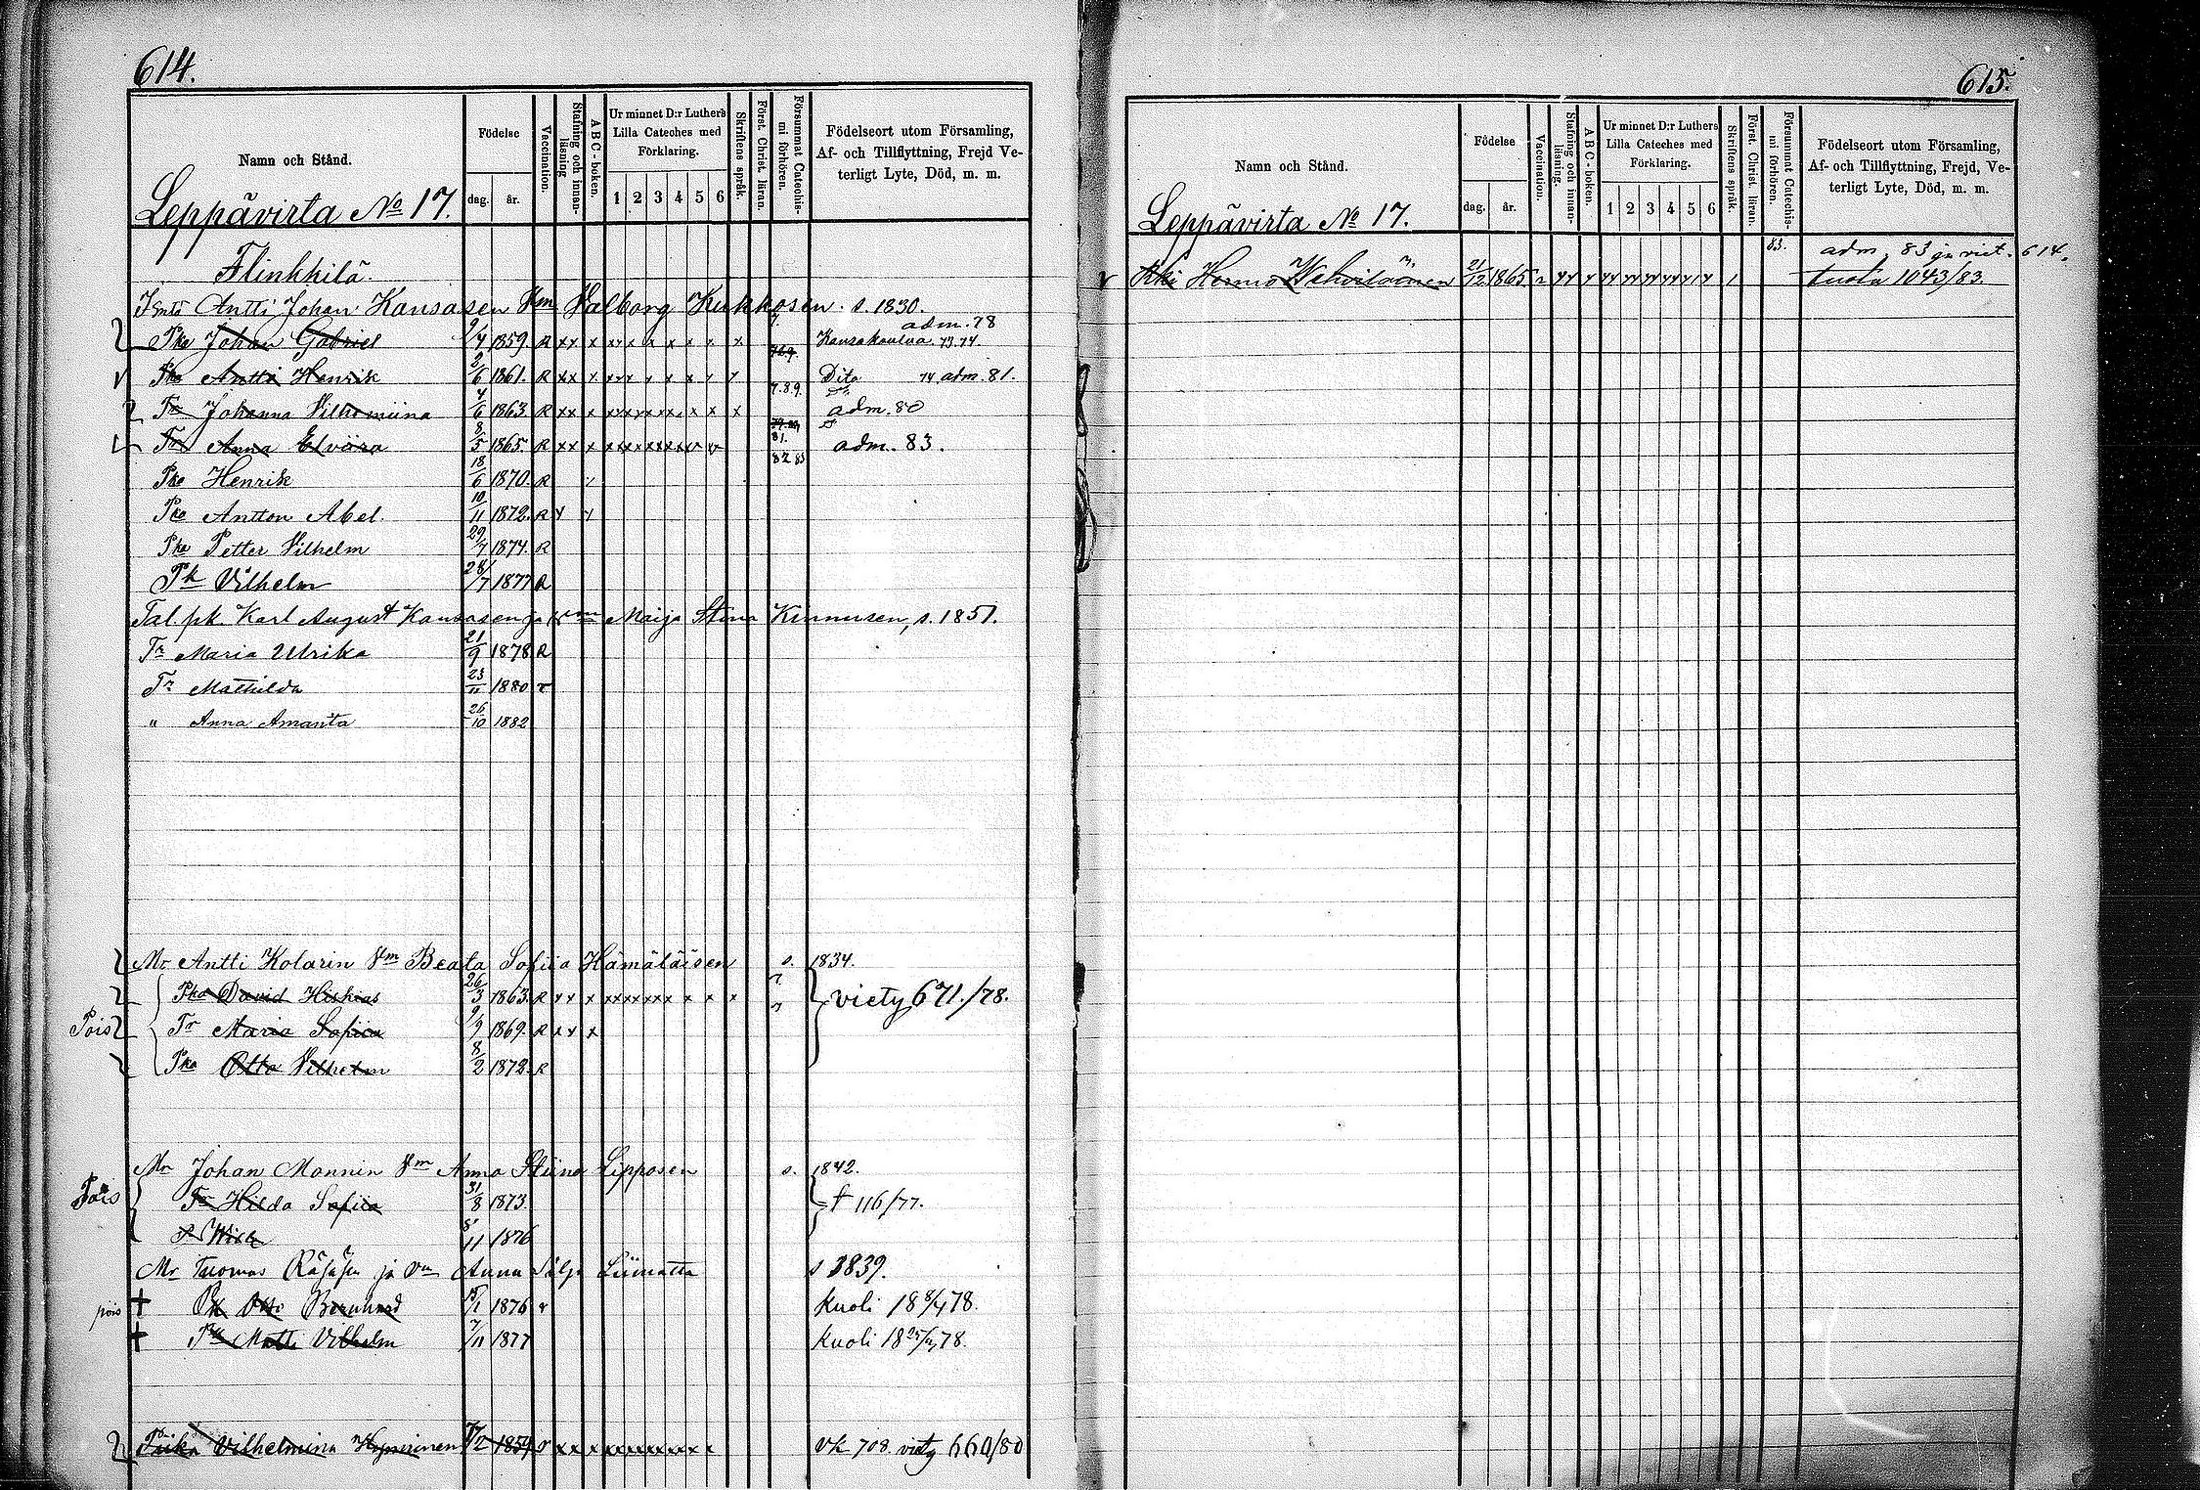 614.
Namn och Stånd.
Födelse
dag. år.
Vaccination.
Stafning och innan-läsning
A B C - boken.
Ur minnet D:r Luthers
Lilla Cateches med
Förklaring.
1 2 3 4 5 6
Skriftens språk.
Först. Christ. läran.
Försummat Catechis-mi förhören.
Födelseort utom Församling,
Af- och Tillflyttning, Frejd Ve-
terligt Lyte, Död, m. m.
Leppävirta No 17.
Flinkkilä.
Antti Johan Kansasen Vm Valborg Kukkosen s. 1830.
adm. 78
Pka Johan Gabriel 9/4 1859. R x x x x x x x x x x x Kansakoulua 73.74.
Pka Antti Henrik 2/6 1861. R Dito 74 adm. 81.
7.8.9.
Tr Johanna Vilhemiina 4/6 1863. R adm. 80
Tr Anna Elviira 8/5 1865. R 81. adm. 83.
82 83
Pka Henrik 18/6 1870. R
Pka Antton Abel. 10/11 1872. R
Pka Petter Vilhelm 29/4 1874. R
Pk Vilhelm 28/7 1877 R
Tal. pk Karl August Kansasen ja Vm Maija Stina Kinnusen, s. 1851.
Tr Maria Ulrika 21/9 1878 R
Tr Mathilda 23/11 1880 r
" Anna Amanta 26/10 1882
Mr Antti Kolarin Vm Beata Sofiia Hämäläisen s. 1834.
Pka David Hiskias 26/3 1863. R viety 671./78.
Pois Tr Maria Sofiia 9/9 1869. R x x x
Pka Otto Vilhelm 8/2 1872. R
Mr Johan Monnin Vm Anna Stiina Lipposen s. 1842.
Pois Tr Hilda Sofiia 31/8 1873. f 116/77.
8/11 1876
Mr Tuomas Räsäsen ja Vm Anna Liimatta s 1839.
pois † Pk Otto Bernhard 15/1 1876 r Kuoli 18 8/4 78.
† Pk Matti Vilhelm 7/11 1877 Kuoli 18 78.
Piika Vilhelmina Hyvärinen 1859 708. viety 660/80
615.
Namn och Stånd.
Födelse
dag. år.
Vaccination.
Stafning och innan-läsning.
A B C - boken.
Ur minnet D:r Luthers
Lilla Cateches med
Förklaring.
1 2 3 4 5 6
Skriftens språk.
Först. Christ. läran.
Försummat Catechis-mi förhören.
Födelseort utom Församling,
Af- och Tillflyttning, Frejd, Ve-
terligt Lyte, Död, m. m.
Leppävirta No 17.
83. adm. 83 ja viet. 614.
21/12 1865. tuotu 1043/83.